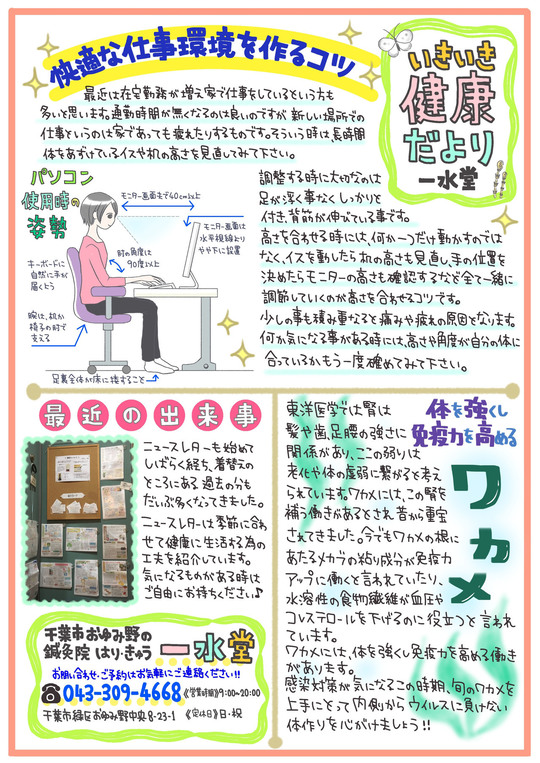 快適な仕事環境を作るコツ
いきいき
健康
だより
一水堂
最近は在宅勤務が増え家で仕事をしているという方も
多いと思います。通勤時間が無くなるのは良いのですが 新しい場所での
仕事というのは家であっても疲れたりするものです。そういう時は、長時間
体をあずけているイスや机の高さを見直してみて下さい。
パソコン
使用時の
姿勢
モニター画面まで40cm以上
モニター画面は
水平視線より
やや下に設置
肘の角度は
90度以上
キーボードに
自然に手が
届くよう
腕は、机か
椅子の肘で
支える
足裏全体が床に接すること
調整する時に大切なのは
足が浮く事なくしっかりと
付き、背筋が伸びている事です。
高さを合わせる時には、何か一つだけ動かすのでは
なく、イスを動したら机の高さも見直し、手の位置を
決めたらモニターの高さも確認するなど全て一緒に
調節していくのが高さを合わせるコツです。
少しの事も積み重なると痛みや疲れの原因となります。
何か気になる事がある時には、高さや角度が自分の体に
合っているか、もう一度確めてみて下さい。
最近の出来事
ニュースレターも始めて
しばらく経ち、着替えの
ところにある 過去の分も
だいぶ多くなってきました。
ニュースレターは季節に合わ
せて健康に生活する為の
工夫を紹介しています。
気になるものがある時は
ご自由にお持ちください♪
千葉市おゆみ野の
鍼灸院 はり・きゅう
一水堂
お問い合わせ・ご予約はお気軽にご連絡ください!!
☎043-309-4668 《営業時間》9:00~20:00
千葉市緑区おゆみ野中央8-23-1 《定休日》日・祝
体を強くし
免疫力を高める
ワカメ
東洋医学では腎は
髪や歯、足腰の強さに
関係があり、ここの弱りは
老化や体の虚弱に繋がると考え
られています。ワカメには、この腎を
補う働きがあるとされ、昔から重宝
されてきました。今でもワカメの根に
あたるメカブの粘り成分が免疫力
アップに働くと言われていたり、
水溶性の食物繊維が血圧や
コレステロールを下げるのに役立つと言われ
ています。
ワカメには、体を強くし免疫力を高める働き
があります。
感染対策が気になるこの時期、旬のワカメを
上手にとって内側からウイルスに負けない
体作りを心がけましょう!!